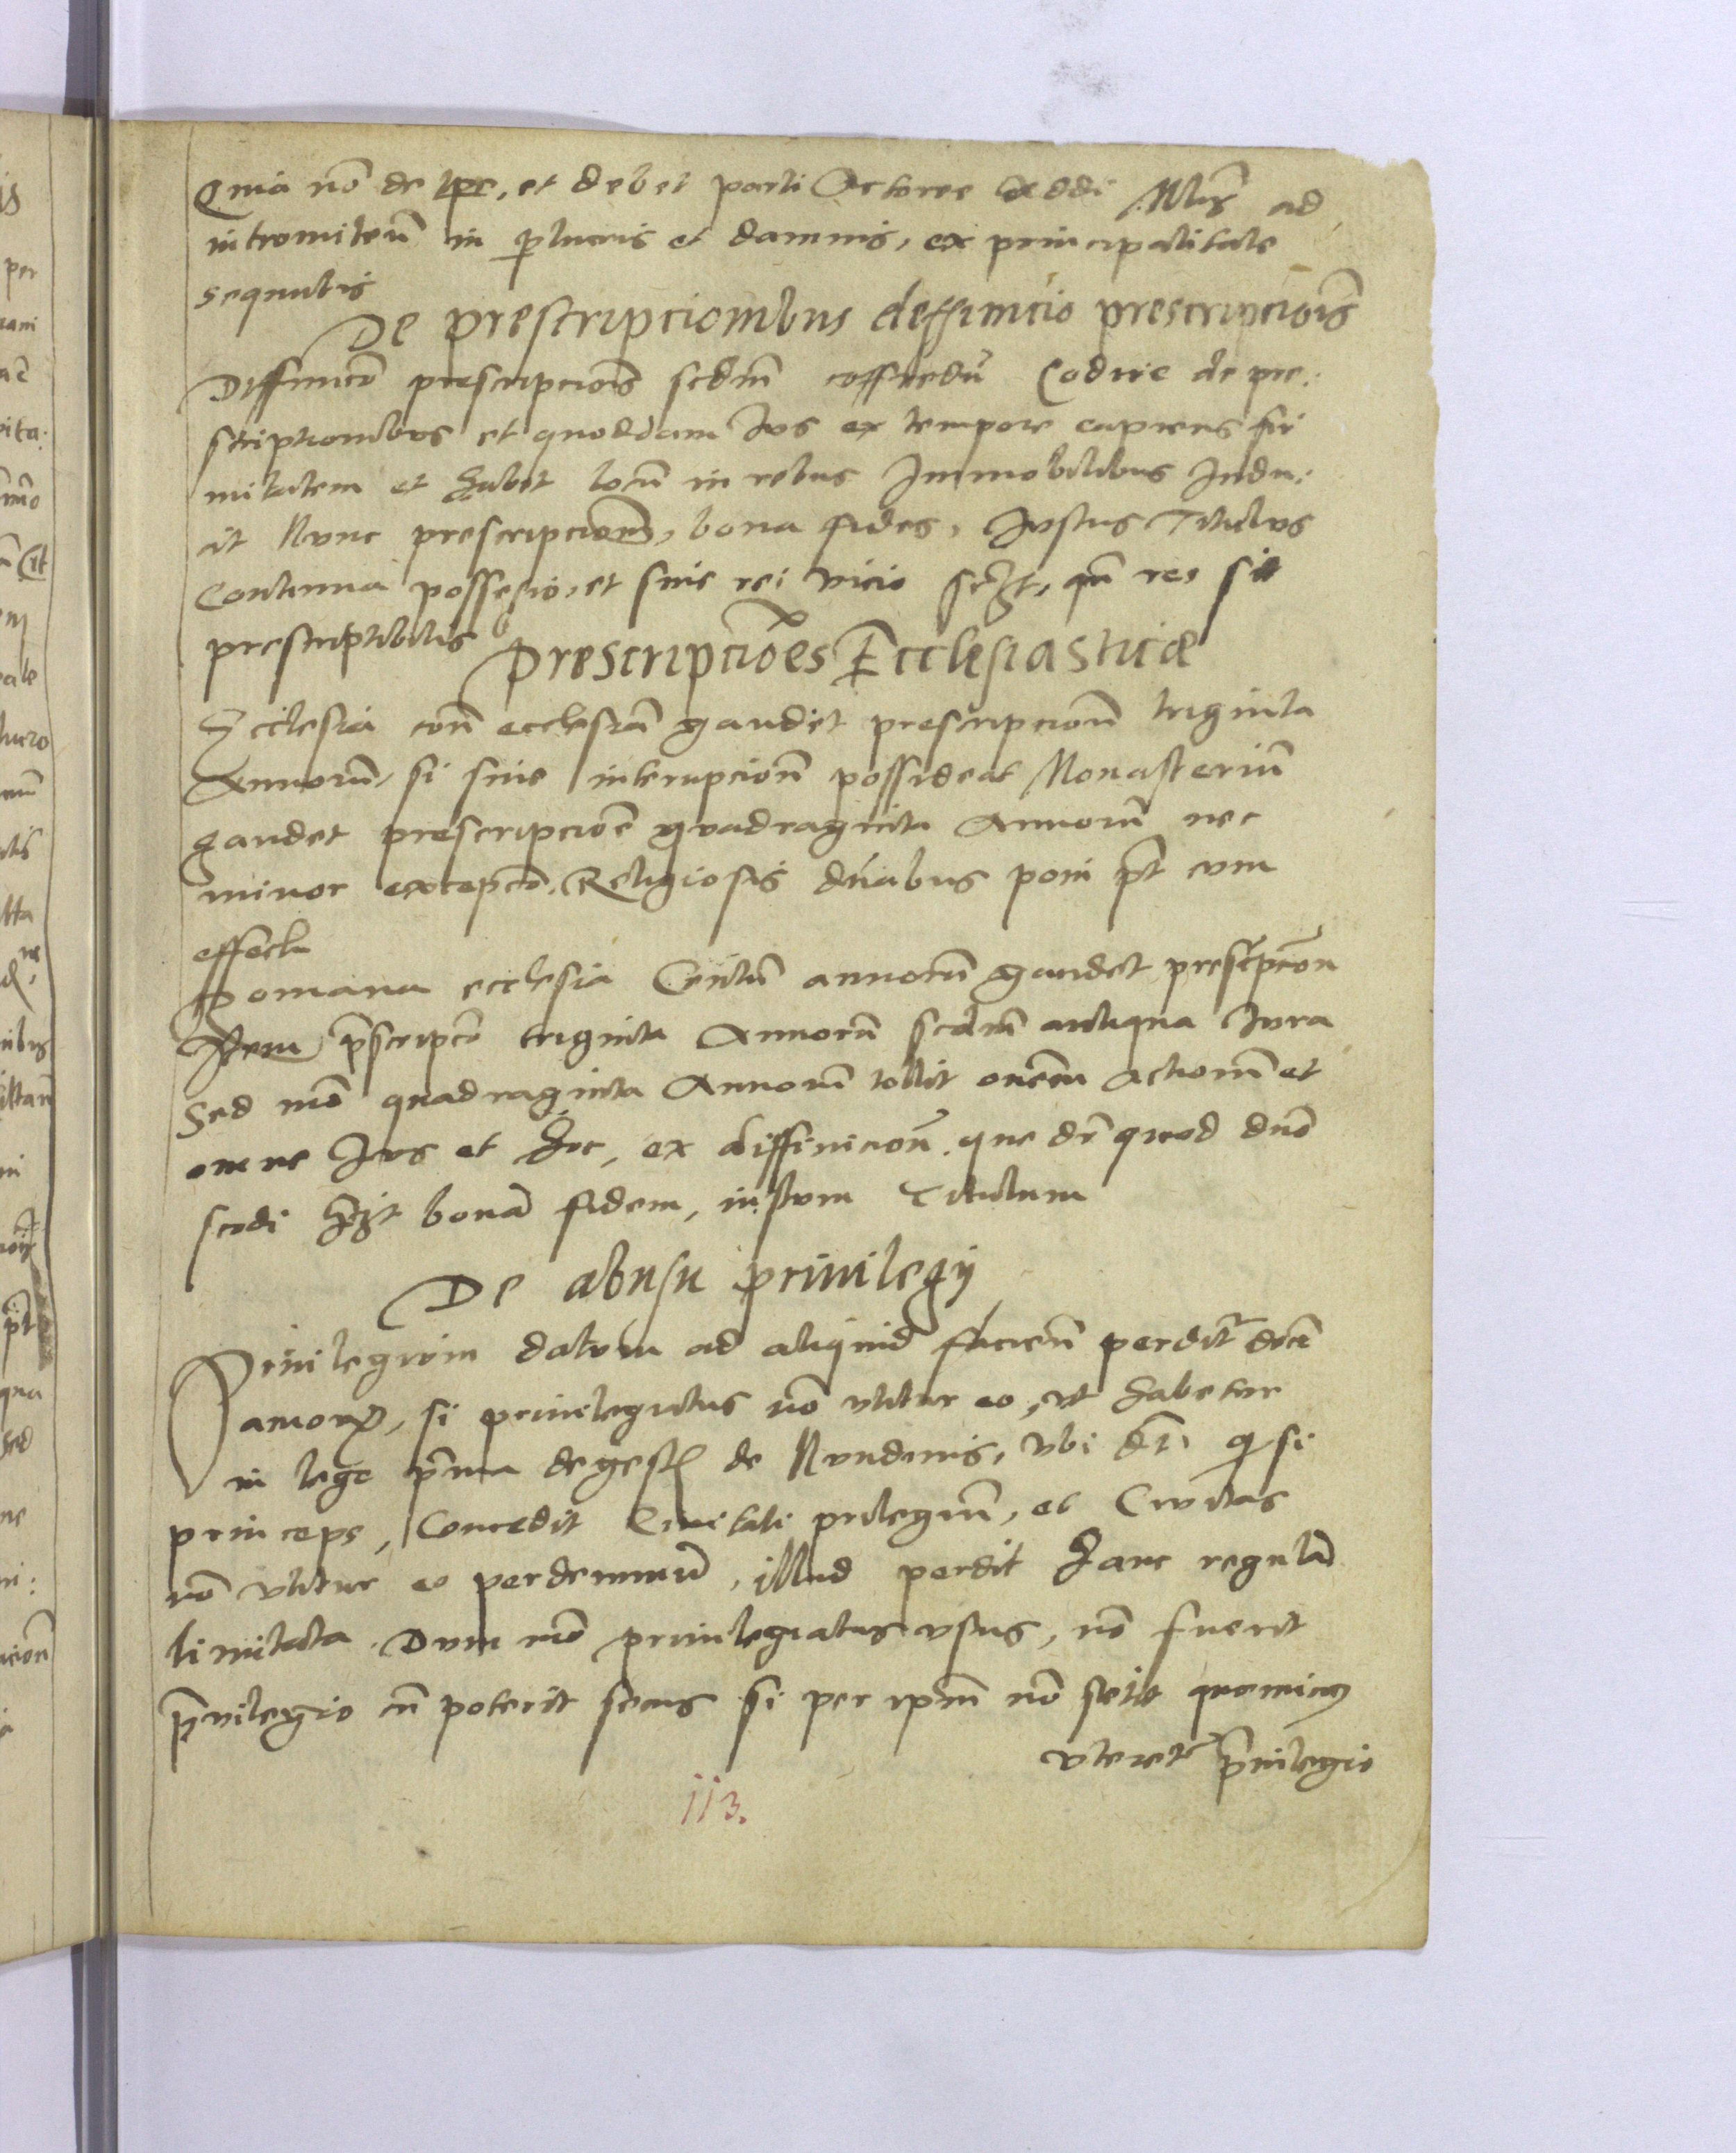 Quia nō de ipe, et debet parti Actoree addi Mlrȝ ad
intromitteñ in p̱lucris et damnis, ex principalitate
sequntis
De prescripcionibus deffinicio prescripciōis
Diffinicō prescripciōis scdm̄ coffredū Codice de pre:
scriptionibus et quoddam Ius ex tempore capiens fir
mitatem et habet locū in rebus Immobilibus Indu:
cit Nunc prescripcioem̄, bona fides, Iustus Titulus
Continua possessio, et sine rei vicio sclꝫt, qm̄ res sit
prescriptibilis
Prescripciões Ecclesiasticæ
Ecclesia con̄ ecclesiā gaudet prescripcioñ triginta
Annorū, si sine interupcioñ possideat Monasteriū
gaudet prescripciōe quadraginta Annorū nec
minor excepcō. Religiosis dnābus poni pt̄ cum
effectu
Romana ecclesia Centū annorū gaudet prescpcōn
Item p̄scripcō triginta Annorū scdm̄ antiqua Iura
Sed mō quadraginta Annorū tollit oñem actionū et
omne Ius et hoc, ex diffinicioñ que dr̄ quod duō
scodi hꝫt bonā fidem, iustum Titulum
De abusu priuilegij
Priuilegium datum ad aliquid facieñ perditr̄ decē
annorꝝ, si priuilegiatus nō vtitur eo, vt habetur
in lege p̄ma degestꝭ de Nundinis, vbi dr̄ ꝙ si
princeps, Concedit Ciuitati prilegiū, et Ciuitas
nō vtitur eo perdecenniū, illud perdit hanc regulā
limitata. Dum mō priuilegiatus vsus, nō fuerit
p̄uilegio cū poterit secus si per ipm̄ nō stetit quominꝰ
vteretr̄ p̄uilegio
113.